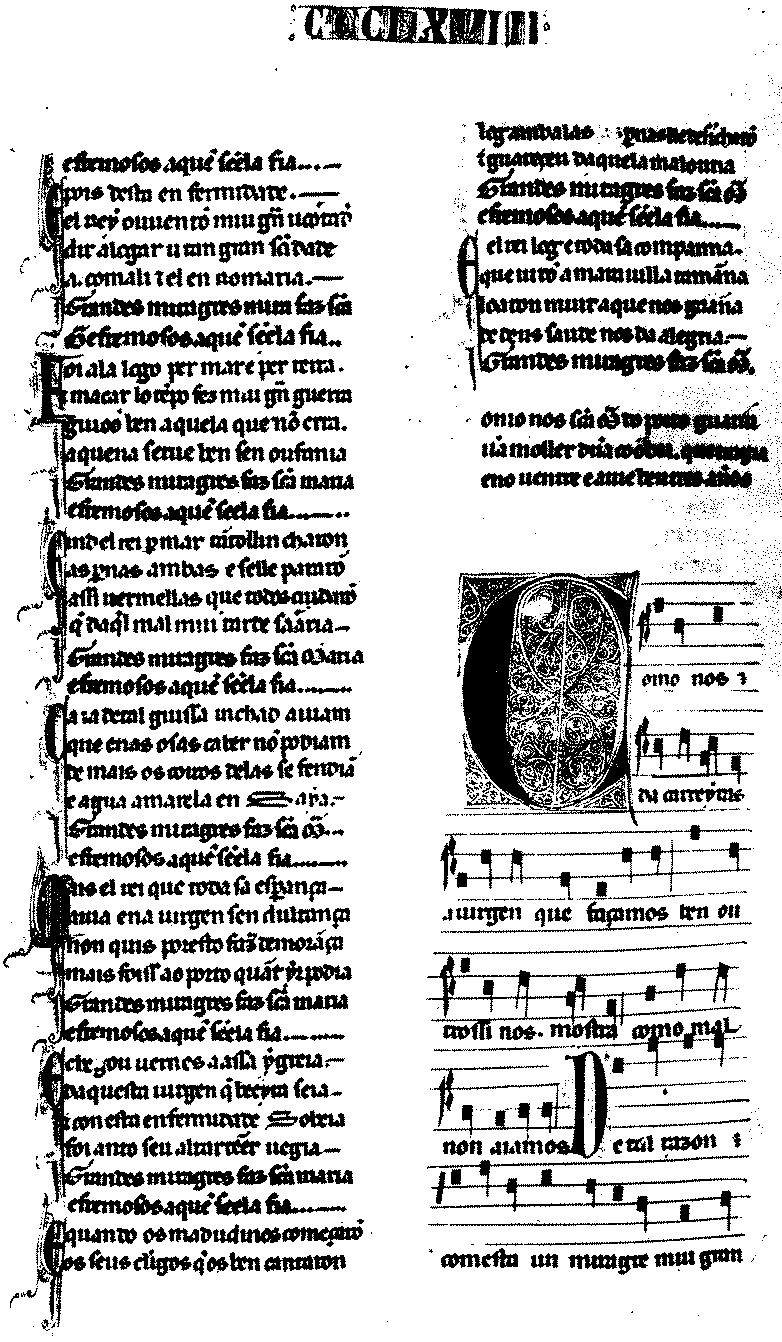 CCCLXVIII
e fremosos aquesceela fia
pois desta en fermidade
el Rey ouuen to mui gñ uoontad
dir a logar u tan gran scidade
a. com ali t el en romaria.
Grandes miragres faz scã
e fremosos aque sceela fia
oi ala logo per mar e per terra.
macar lo tẽpo fez mui gñ guerra
guioo ben aquela que nõ erra.
a quen a serue ben sen oufania
Grandes miragres faz scã maria
e fremosos aque sceela fia
end el rei p mar
as pnas ambas e selle pararõ
assi uermellas que todos cuidarõ
q daql mal mui tarde sãaria
Grandes miragres faz scã Maria
e fremosos aque sceela fia
a ia de tal guissa inchad auiam
que enas osas caber nõ podiam
de mais os coiros delas se fendiã
e agua amarela en
Grandes miragres faz scã
e fremosos aque sceela fia
Mas el rei que toda sa esperança
auia ena uirgen sen dultança
non quis por esto faz demorãça
mais foiss ao porto quãt yr podia
Grandes miragres faz scã maria
e fremosos aque sceela fia
e chegou uernes a assa ygreia
daquesta uirgen q beeyta seia
e con esta enfermidade
foi ant o seu altar teer uegia
Grandes miragres faz scã maria
e fremosos aque sceela fia
E quando os madudinos começarõ
os seus cligos qos ben cantaron
log ambalas pnas
t guareçeu daquela malautia
Grandes miragres faz scã M
e fremosos aque sceela fia
E el rei log e toda sa companna.
que uirõ a marauilla tamãna
loaron muit a que nos guãña
de deus saude nos da alegria.
Grandes miragres faz scã M.
omo nos scã M do porto guariu
ũa moller
eno uentre e auie ben tres años
Como nos
da carreyras
a uirgen que façamos ben ou
trossi nos. mostra como mal
non aiamos De tal razon
com esta un miragre mui gran